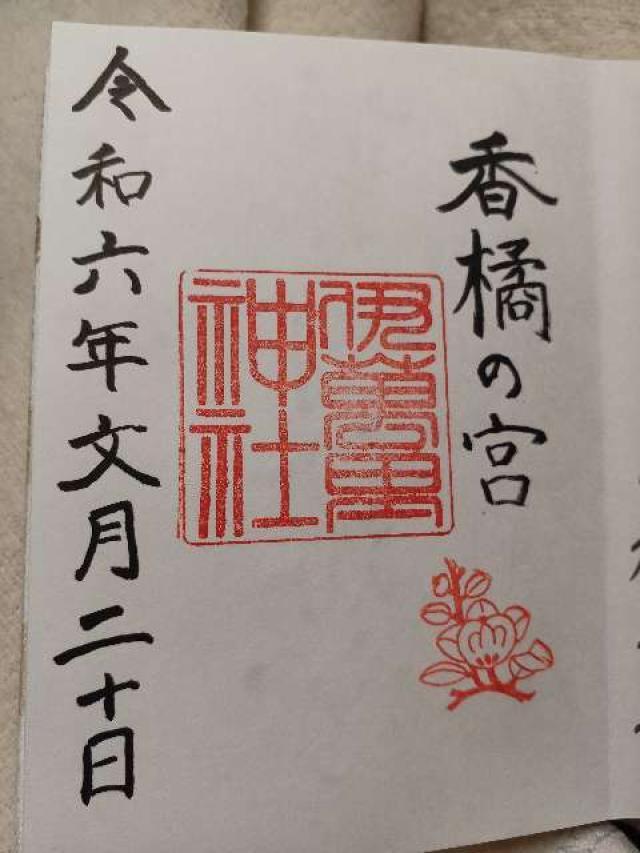 香橘の宮
伊萬里神社
令和六年文月二十日